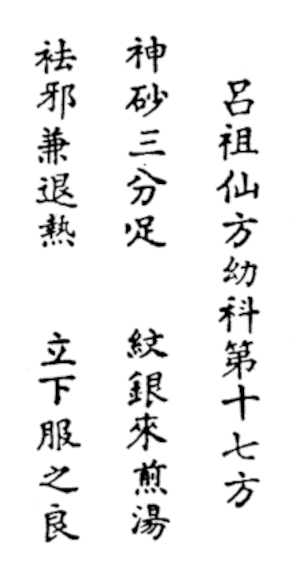 呂祖仙方幼科第十七方
神砂三分足　紋銀來煎湯
祛邪兼退熱　立下服之良